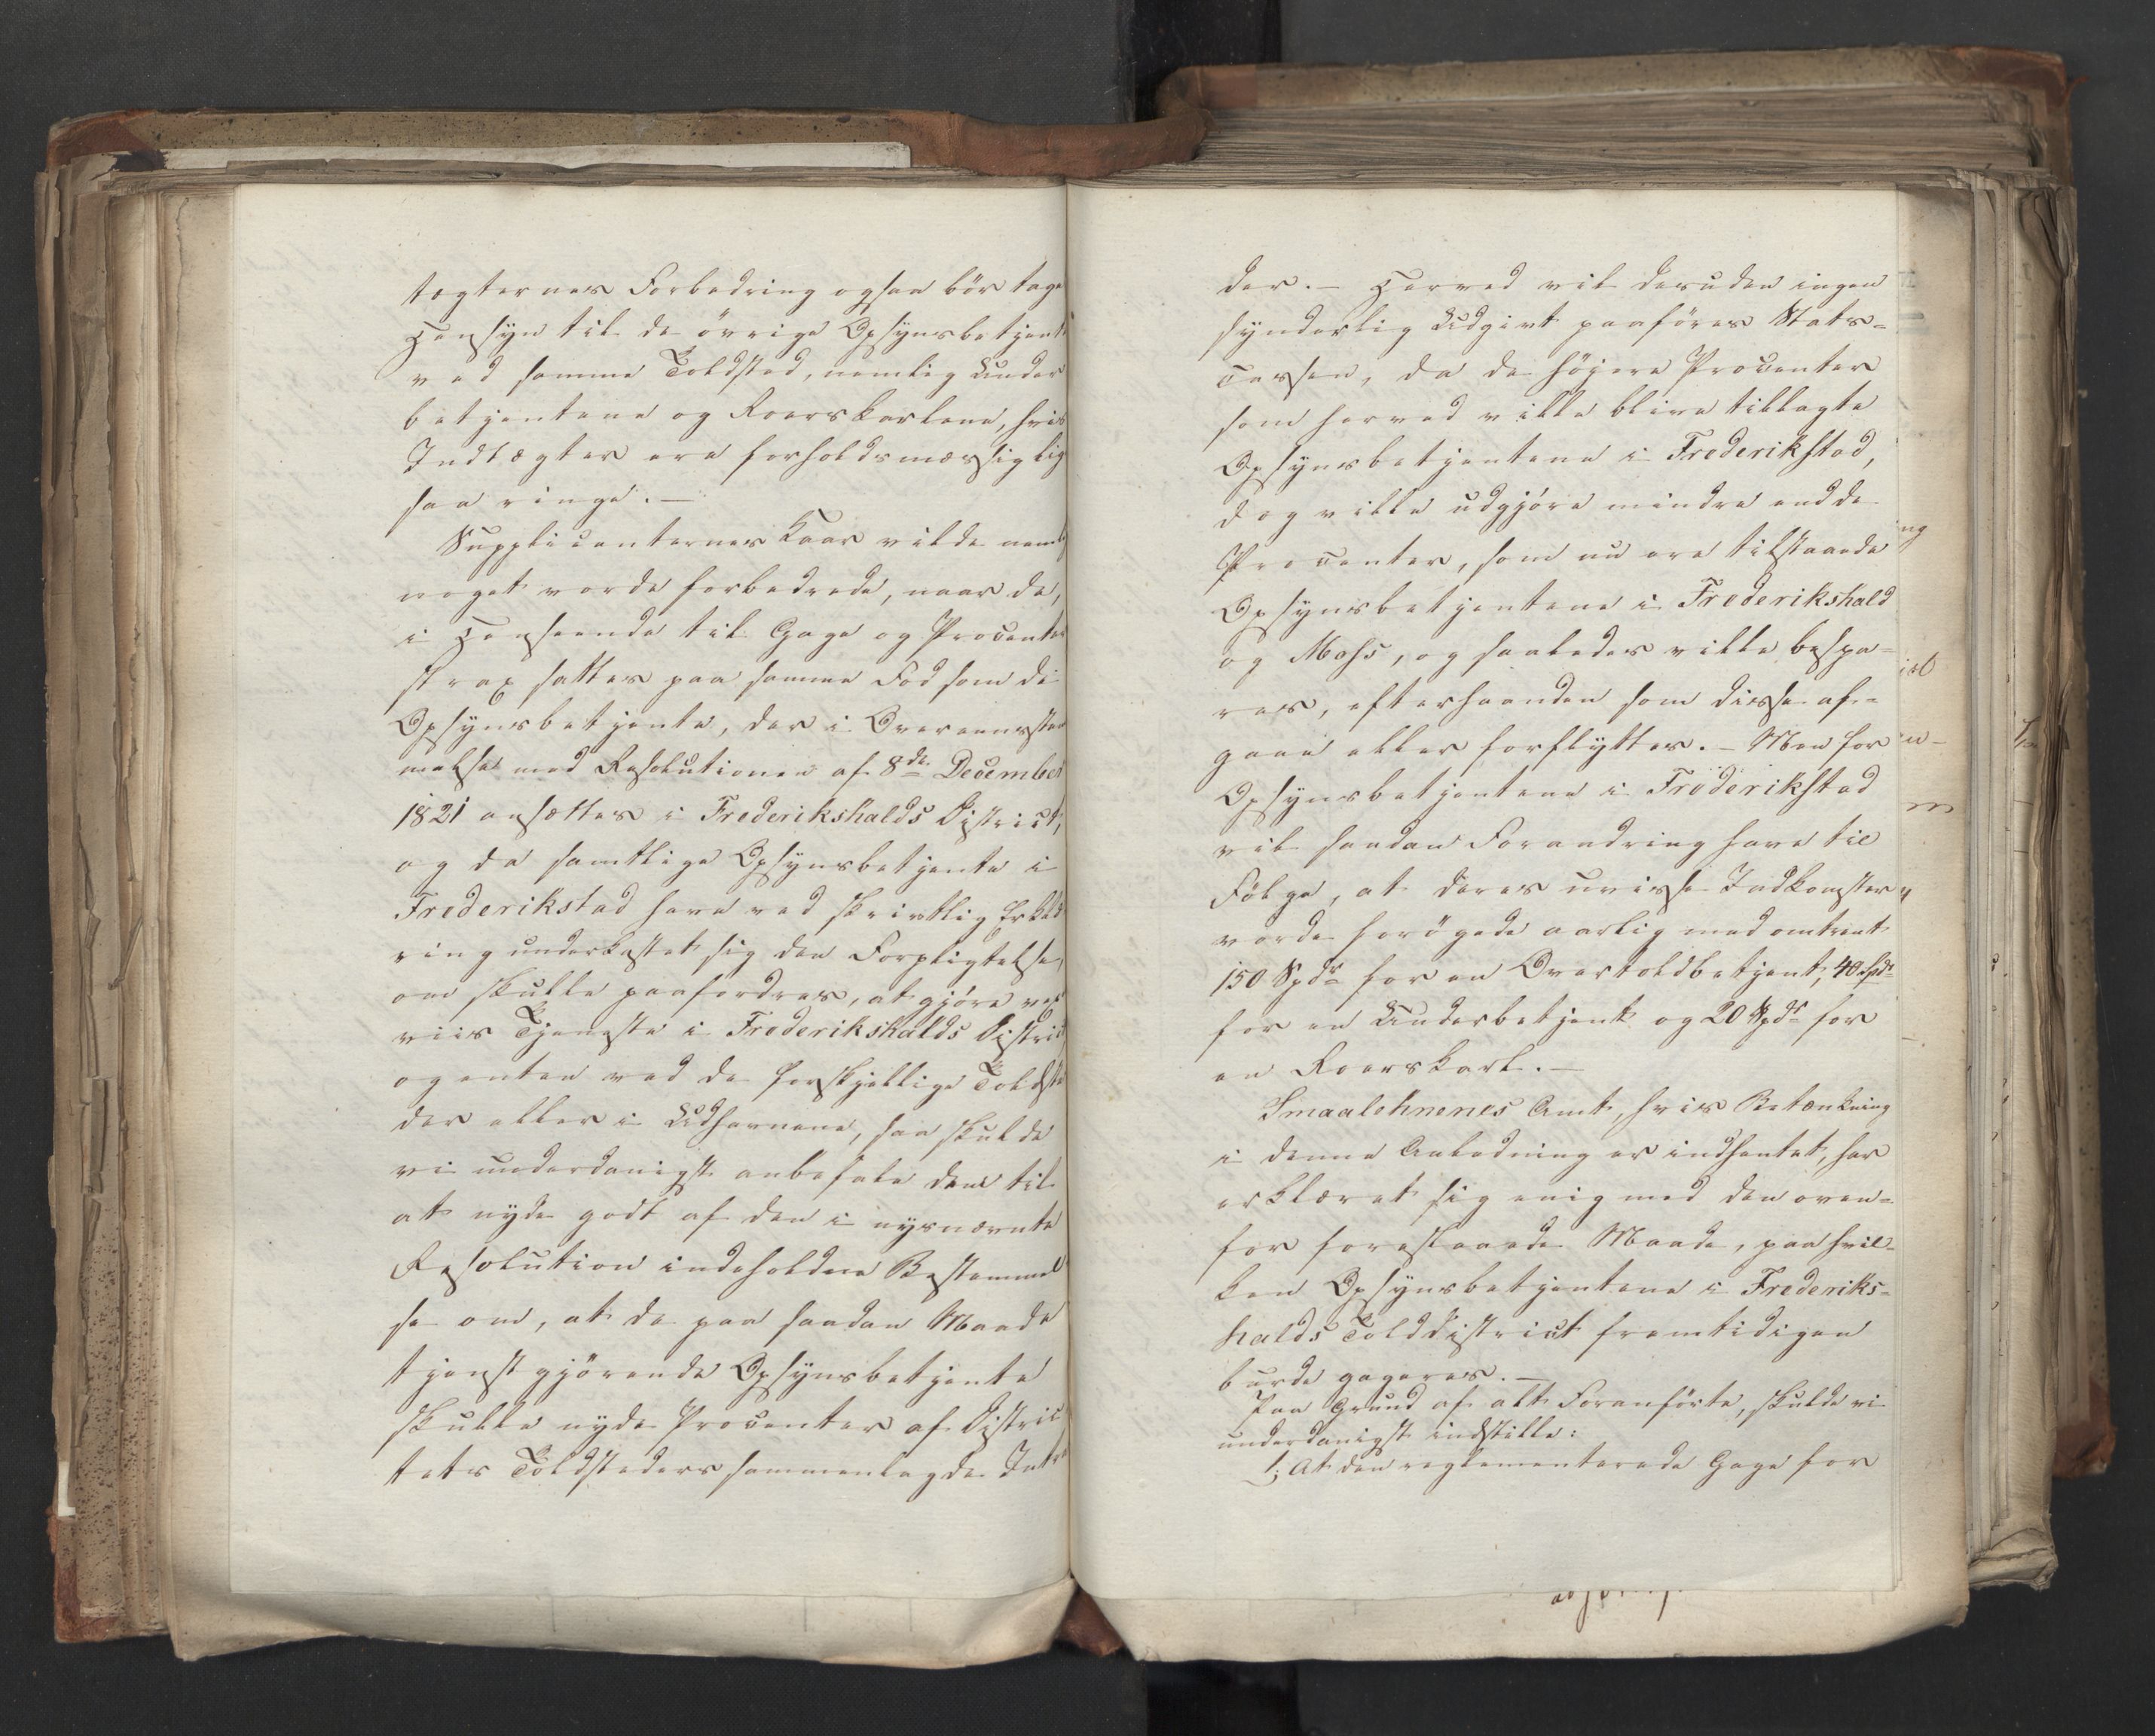 tægternes Forbedring ogsaa bör tage
Hensyn til de övrige Opsynsbetjent
ved samme Toldsted, nemlig Under
betjentene og Roerskarlene, hvis
Indtægter ere forholdsmæssiglig
saa ringe. –
Supplicanternes Kaar vilde nemlig
noget vorde forbedrede, naar de,
i Henseende til Gage og Procenter
strax sattes paa samme Fod som de
Opsynsbetjente, der i Overeensstem
melse med Resolutionen af 8de December
1821 ansættes i Frederikshalds District,
og da samtlige Opsynsbetjente i
Frederikstad have ved skrivtlig Erklæ
ring underkastet sig den Forpligtelse,
om skulle paafordres, at gjöre vex
viis Tjeneste i Frederikshalds District
og enten ved de forskjellige Toldste
der eller i Udhavnene, saa skulde
vi underdanigst anbefale dem til
at nyde godt af den i nysnævnte
Resolution indeholdne Bestemmel
se om, at de paa saadan Maade
tjenstgjörende Opsynsbetjente
skulle nyde Procenter af Distric
tets Toldsteders sammenlagde Intra
der. – Herved vil desuden ingen
synderlig Udgivt paaföres Stats-
Cassen, da de höjere Procenter
som herved ville blive tillagte
Opsynsbetjentene i Frederikstad,
dog ville udgjöre mindre end de
Procenter, som nu ere tilstaaede
Opsynsbetjentene i Frederikshald
og Moss, og saaledes ville bespa-
res, efterhaanden som disse af-
gaae eller forflyttes. – Men for
Opsynsbetjentene i Frederikstad
vil saadan Forandring have til
Fölge, at deres uvisse Indkomster
vorde forögede aarlig med omtrent
150 Spdr for en Overtoldbetjent, 40 Spdr
for en Underbetjent og 20 Spdr for
en Roerskarl. –
Smaalehnenes Amt, hvis Betænkning
i denne Anledning er indhentet, har
erklæret sig enig med den oven-
for forestaaede Maade, paa hvil-
ken Opsynsbetjentene i Frederiks-
halds Tolddistrict fremtidigen
burde gageres. –
Paa Grund af alt Foranförte, skulde vi
underdanigst indstille:
1; At den reglementerede Gage for